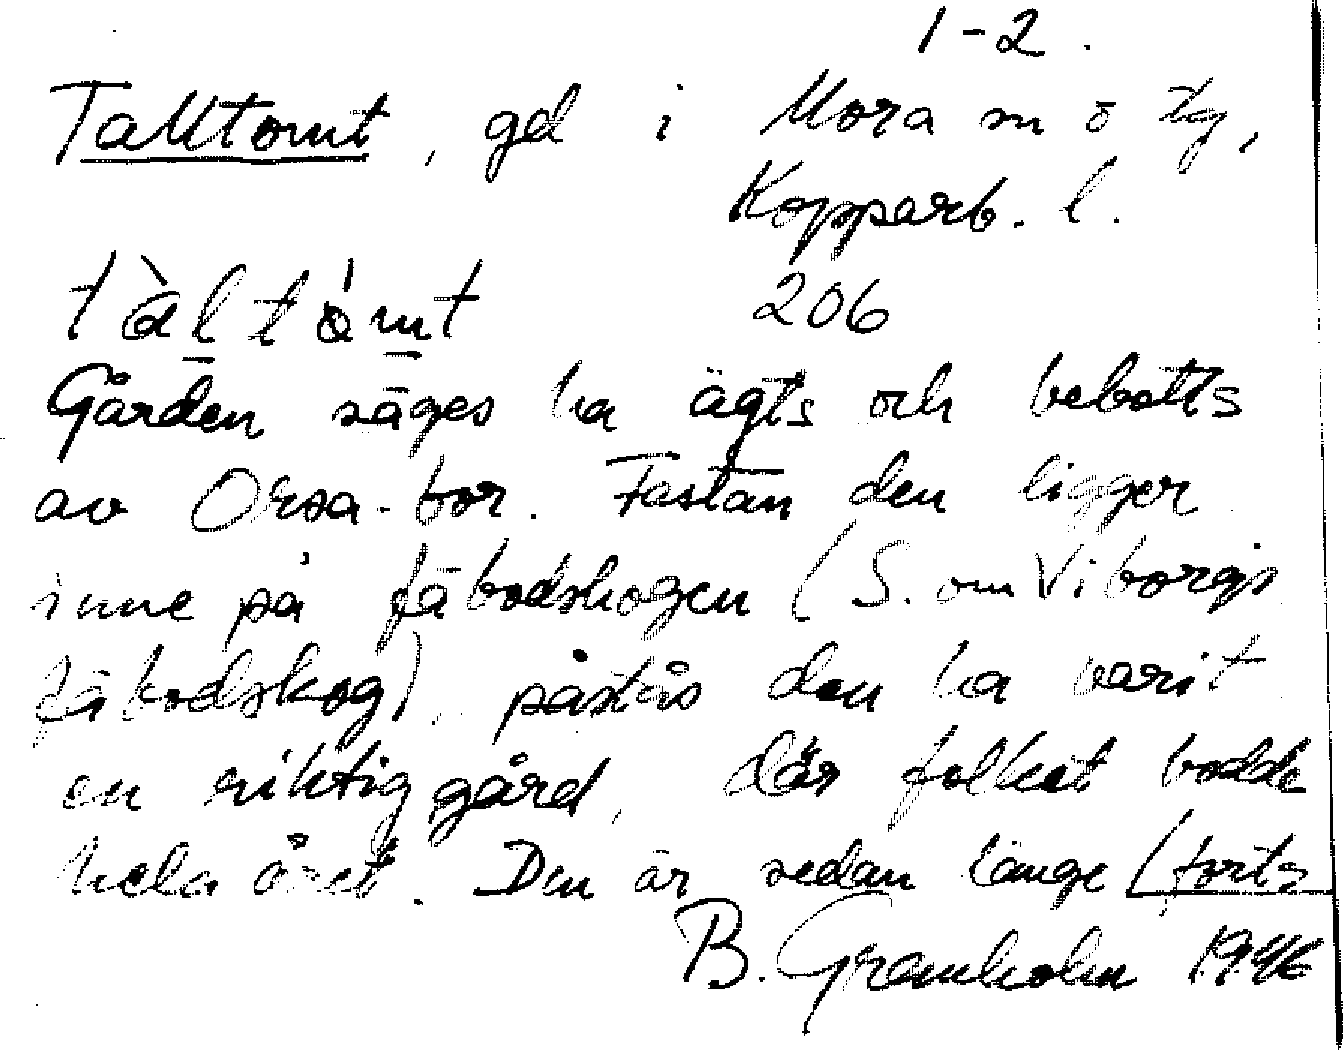 1-2.
Talltomt, gd i Mora sn ö tg,
Kopparb. l.
tàltómt 206
Gården säges ha ägts och bebotts
av Orsa-bor. Fastän den ligger
inne på fäbodskogen (S. om Viborgs
fäbodskog), påstås den ha varit
en riktig gård, där folket bodde
hela året. Den är sedan länge (forts
B. Granholm 1946